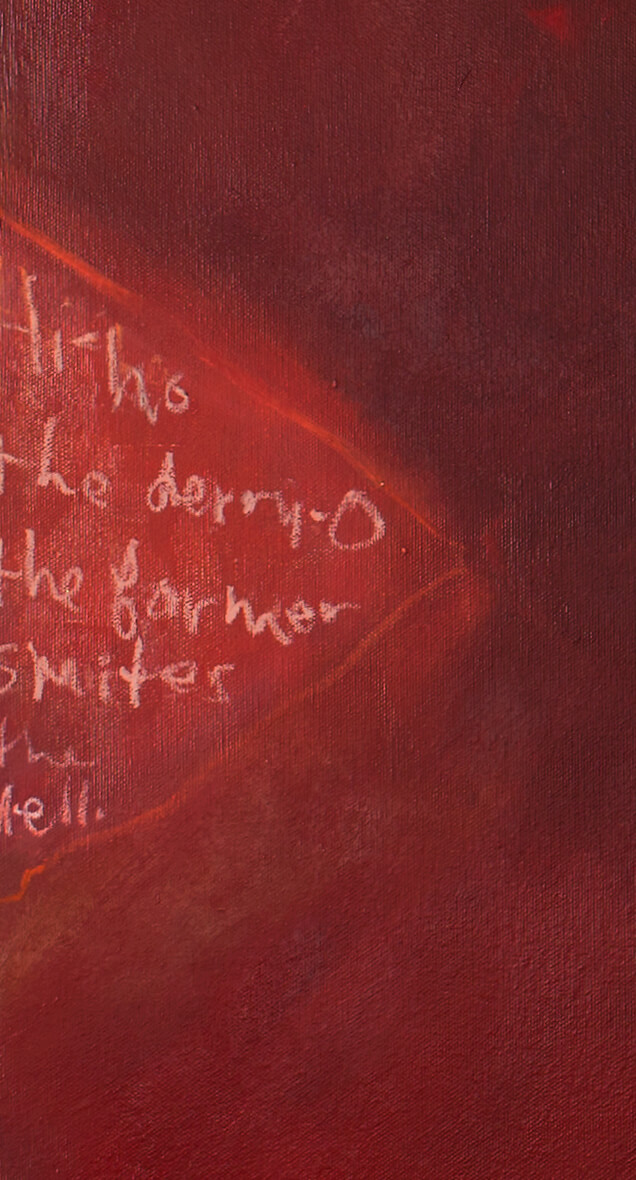 Hi-ho
the derry-O
the farmer
smites
the
dell.